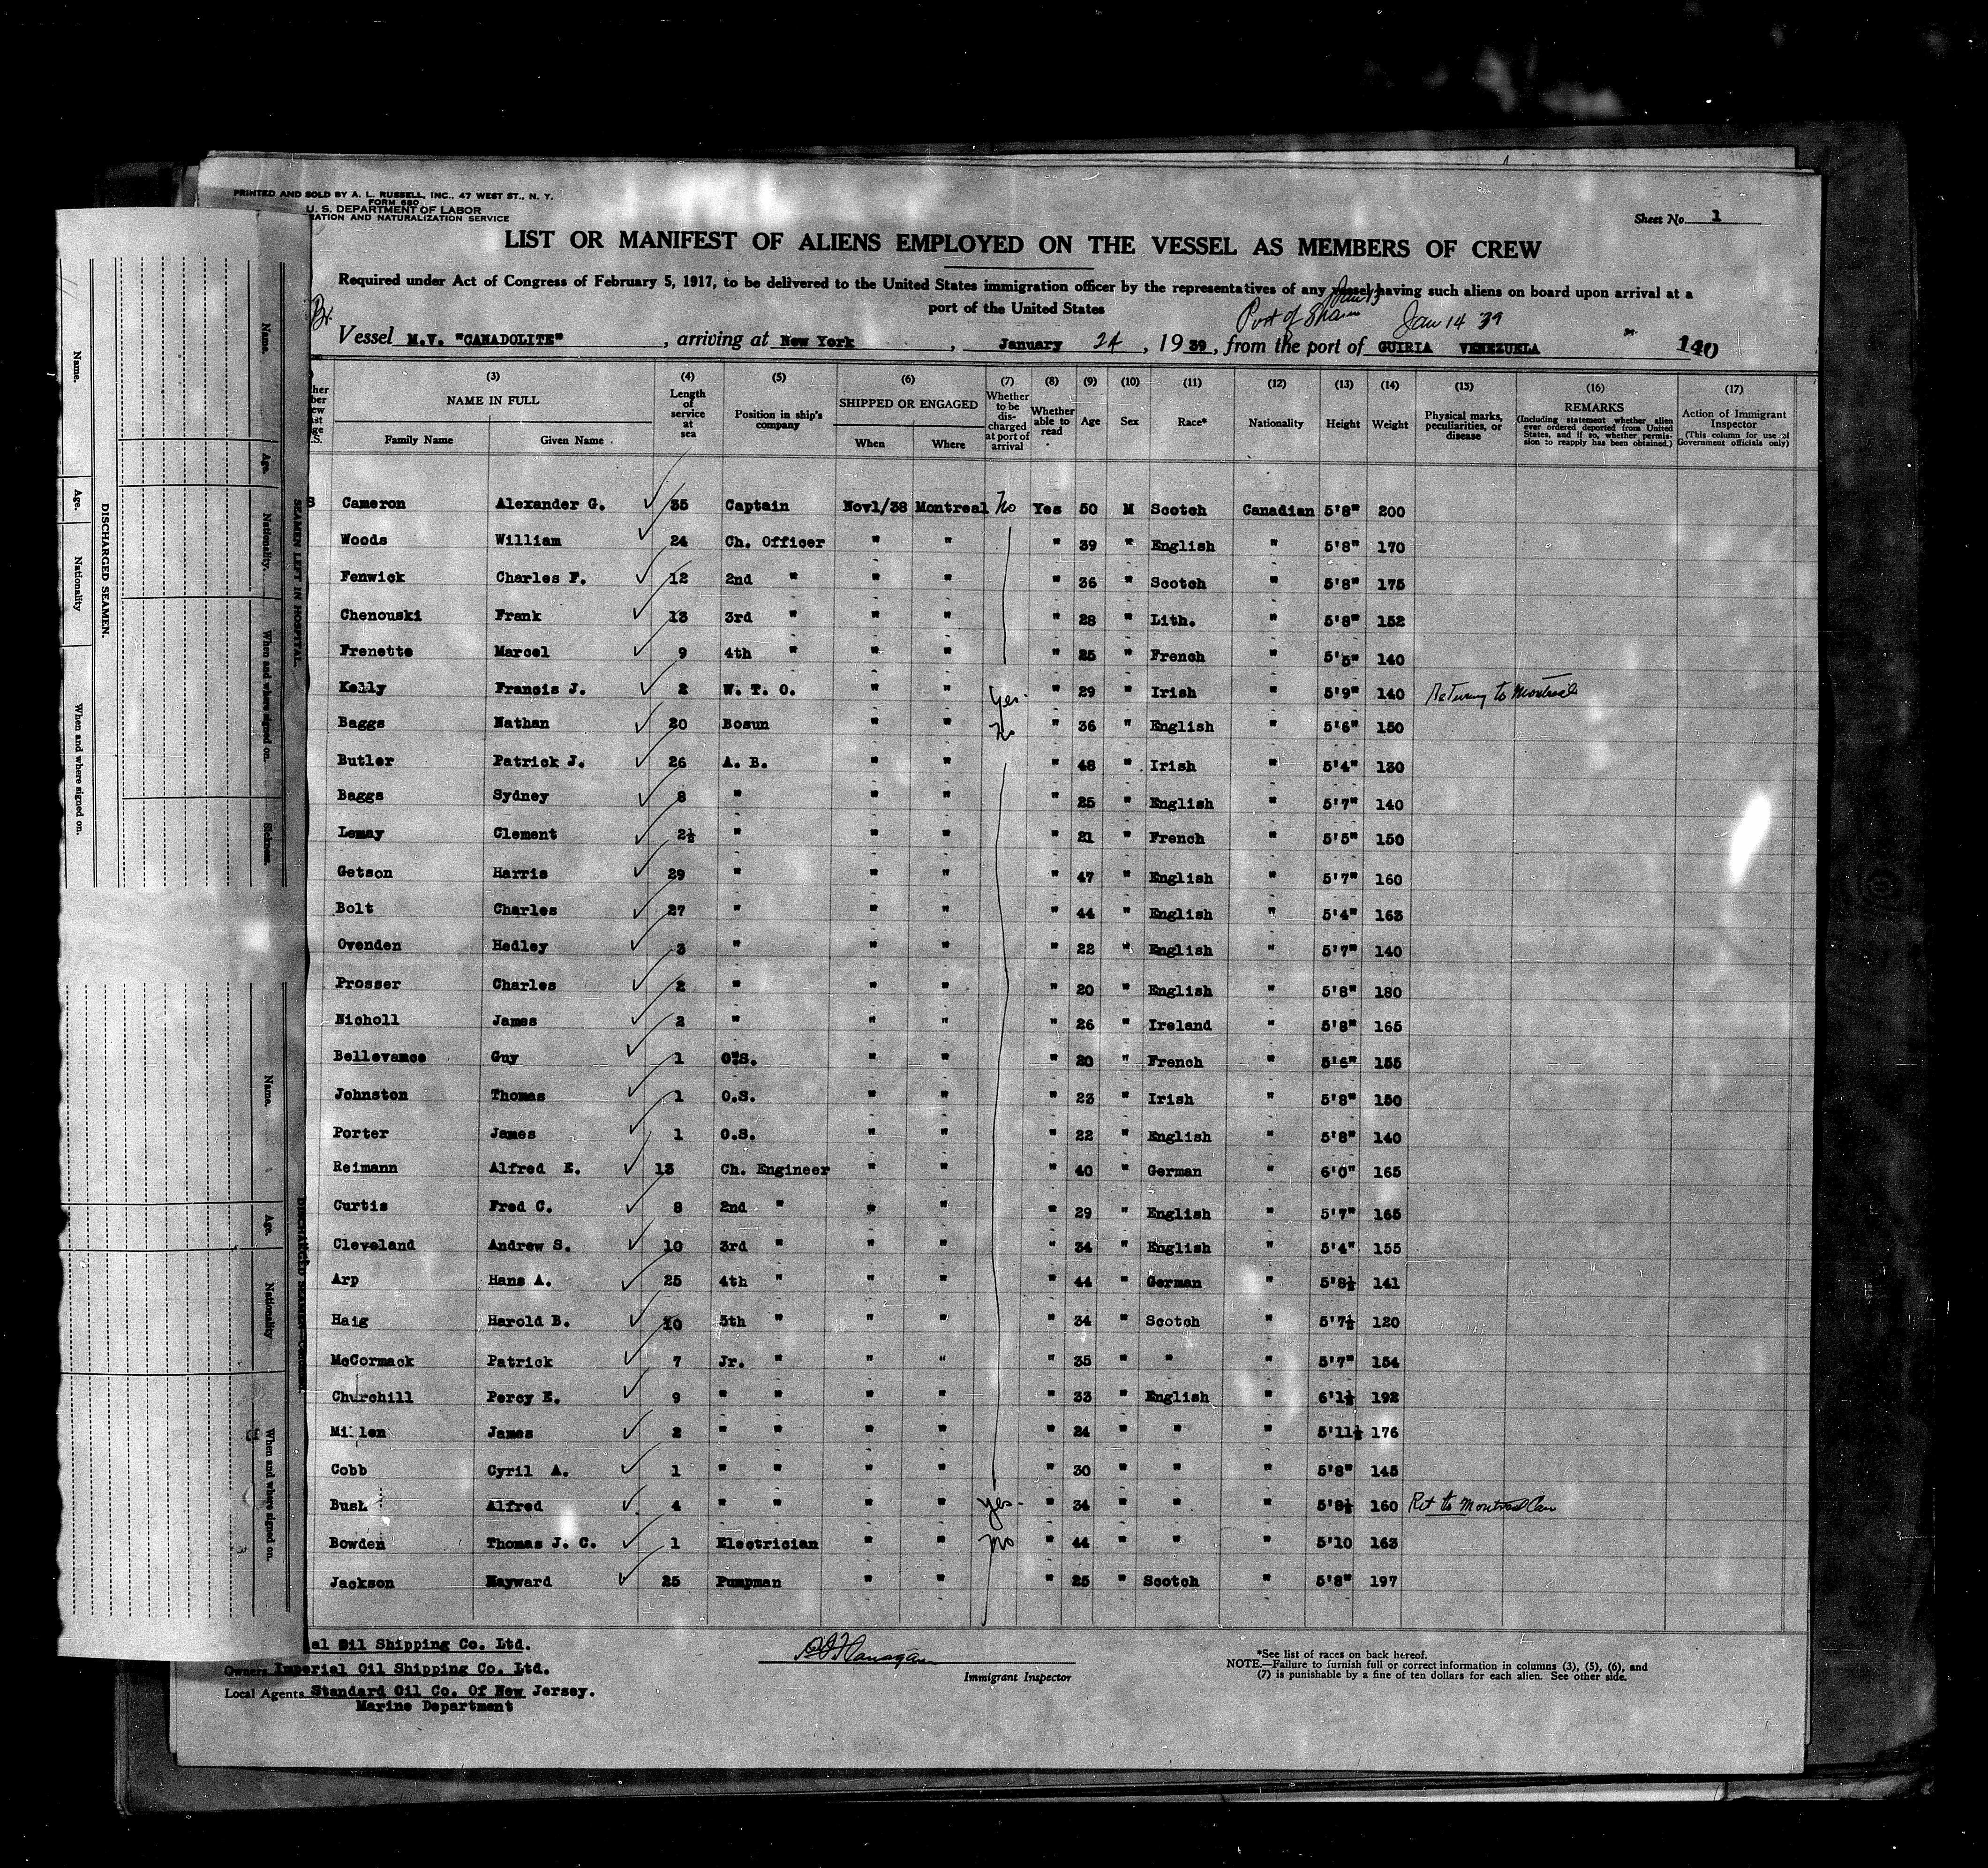 PRINTED AND SOLD BY A. L. RUSSELL, INC., 47 WEST ST., N. Y.
FORM 680
U. S. DEPARTMENT OF LABOR
RATION AND NATURALIZATION SERVICE
Sheet No. 1
LIST OR MANIFEST OF ALIENS EMPLOYED ON THE VESSEL AS MEMBERS OF CREW
Required under Act of Congress of February 5, 1917, to be delivered to the United States immigration officer by the representatives of any vessel having such aliens on board upon arrival at a
port of the United States
Br. Port of Jan 13 Jan 14 39
Vessel M.V. "CANADOLITE", arriving at New York, January 24, 1939, from the port of GUIRIA VENEZUELA 140
(3) (4) (5) (6) (7) (8) (9) (10) (11) (12) (13) (14) (15) (16) (17)
NAME IN FULL Family Name Given Name
Length of service at sea
Position in ship's company
SHIPPED OR ENGAGED When Where
Whether to be discharged at port of arrival
Whether able to read
Age Sex Race* Nationality Height Weight
Physical marks, peculiarities, or disease
REMARKS (Including statement whether alien ever ordered deported from United States, and if so, whether permission to reapply has been obtained.)
Action of Immigrant Inspector (This column for use of Government officials only)
Cameron Alexander G. 35 Captain Nov1/38 Montreal No Yes 50 M Scotch Canadian 5'8" 200
Woods William 24 Ch. Officer " " " 39 " English " 5'8" 170
Fenwick Charles F. 12 2nd " " " " 36 " Scotch " 5'8" 175
Chenouski Frank 13 3rd " " " " 28 " Lith. " 5'8" 152
Frenette Marcel 9 4th " " " " 25 " French " 5'5" 140
Kelly Francis J. 2 W. T. O. " " Yes " 29 " Irish " 5'9" 140 Returning to Montreal
Baggs Nathan 20 Bosun " " No " 36 " English " 5'6" 150
Butler Patrick J. 26 A. B. " " " 48 " Irish " 5'4" 130
Baggs Sydney 8 " " " " 25 " English " 5'7" 140
Lemay Clement 2½ " " " " 21 " French " 5'5" 150
Getson Harris 29 " " " " 47 " English " 5'7" 160
Bolt Charles 27 " " " " 44 " English " 5'4" 163
Ovenden Hedley 3 " " " " 22 " English " 5'7" 140
Prosser Charles 2 " " " " 20 " English " 5'8" 180
Nicholl James 2 " " " " 26 " Ireland " 5'8" 165
Bellevance Guy 1 O.S. " " " 20 " French " 5'6" 155
Johnston Thomas 1 O.S. " " " 23 " Irish " 5'8" 150
Porter James 1 O.S. " " " 22 " English " 5'8" 140
Reimann Alfred E. 13 Ch. Engineer " " " 40 " German " 6'0" 165
Curtis Fred C. 8 2nd " " " " 29 " English " 5'7" 165
Cleveland Andrew S. 10 3rd " " " " 34 " English " 5'4" 155
Arp Hans A. 25 4th " " " " 44 " German " 5'8½ 141
Haig Harold B. 10 5th " " " " 34 " Scotch " 5'7½ 120
McCormack Patrick 7 Jr. " " " " 35 " " " 5'7" 154
Churchill Percy E. 9 " " " " " 33 " English " 6'1½ 192
Millen James 2 " " " " " 24 " " " 5'11½ 176
Cobb Cyril A. 1 " " " " " 30 " " " 5'8" 145
Bush Alfred 4 " " " " Yes " 34 " " " 5'8½ 160 Ret to Montreal Can
Bowden Thomas J. C. 1 Electrician " " No " 44 " " " 5'10 163
Jackson Hayward 25 Pumpman " " " 25 " Scotch " 5'8" 197
al Oil Shipping Co. Ltd.
Owners Imperial Oil Shipping Co. Ltd.
Local Agents Standard Oil Co. Of New Jersey.
Marine Department
Immigrant Inspector
*See list of races on back hereof.
NOTE.—Failure to furnish full or correct information in columns (3), (5), (6), and
(7) is punishable by a fine of ten dollars for each alien. See other side.
DISCHARGED SEAMEN.
Name. Age. Nationality When and where signed on.
SEAMEN LEFT IN HOSPITAL.
Name. Age. Nationality. When and where signed on. Sickness.
Name. Age. Nationality When and where signed on.